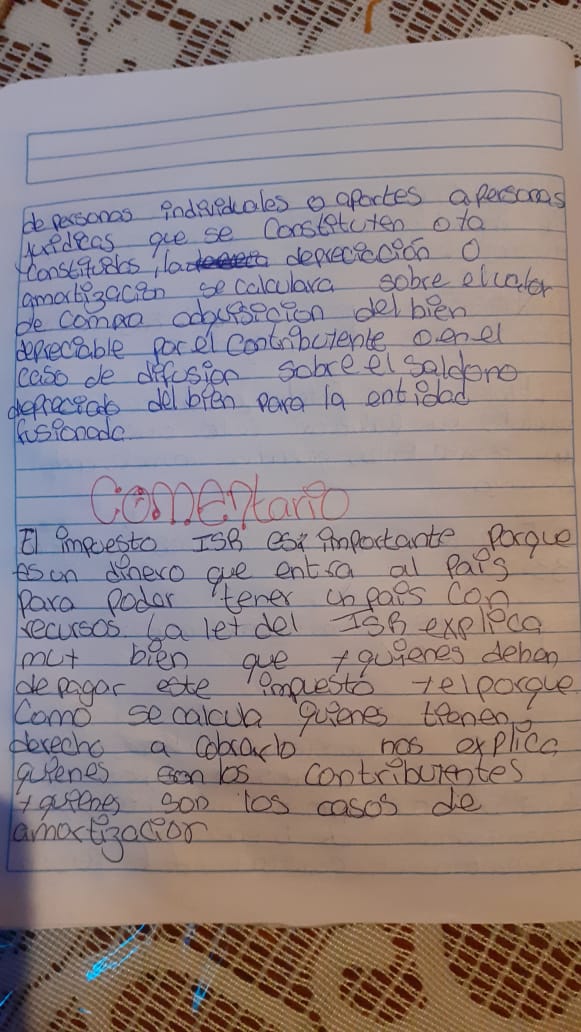 de personas individuales o aportes a personas
juredicas que se Constituten o ta
Constituidas, la depreciación o
amortización se calculara sobre el valor
de compra adquisicion del bien
depreciable por el Contributente o en el
caso de difusion sobre el saldo no
depreciado del bien para la entidad
fusionada.
Comentario
El impuesto ISR es importante Porque
es un dinero que entra al País
para poder tener un país con
recursos. La let del ISR explica
mut bien que t quienes deben
de pagar este impuesto t el porque
Como se calcula quienes tienen
derecho a Cobrarlo nos explica
quienes son los contributentes
t quienes son los casos de
amortizacion